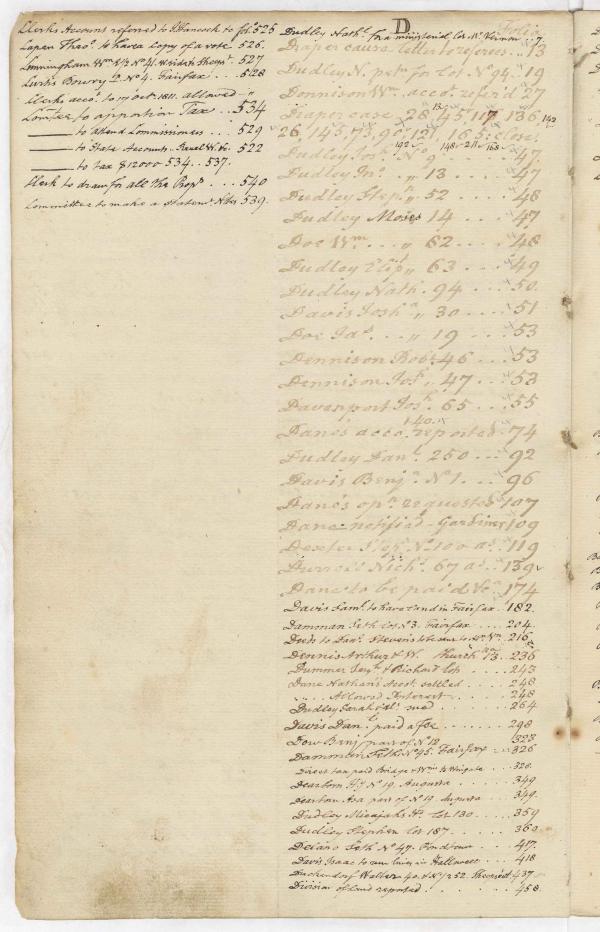 Clerks Accounts referred to J Hancock to fol. 525
Lapan Theo.r to have a Copy of a vote 526.
Cunningham Wm. 527
Curtis Bowry No. 4. Fairfax . . 528
Clerks acco.t to 17 Oct. 1811. allowed
Com.tee to apportion Tax . . 534
—— to attend Commissioners . . . 529
—— to State Accounts 522
—— to tax $12000 - 534. - 537.
Clerk to draw for all the Prop.rs . . . 540
Committee to make a Statem.t 539.
D
Dudley Nath.l for a ministerial Lot Mt. Vernon 7.
Folio
Draper cause letter to referees . . 13
Dudley N. pet.n for Lot No. 94 . . 19
Dennison Wm. acco.t refer'd 27
Draper case 28, 45, 117, 136, 142
26, 145, 73, 90, 121, 165: close.
192 148 - 211 - 168
Dudley Jos.h No. 9 . . . 47.
Dudley Jn.o „ 13 . . . 47
Dudley Step.n „ 52 . . . 48
Dudley Moses 14 . . . 47
Doe Wm. . . . „ 62 . . . 48
Dudley Elip.t „ 63 . . . 49
Dudley Nath.l 94 . . . 50.
Davis Josh.a „ 30 . . . 51
Doe Ja.s . . . „ 19 . . . 53
Dennison Rob.t 46 . . . 53
Dennison Jos.h „ 47 . . . 53
Davenport Jos.h 65 . . . 55
140.
Dane's acco.t reported - 74
Dudley Dan.l 250 . . . 92
Davis Benj.a No. 1. . . . 96
Dane's op.n requested 107
Dane notified - Gardiner 109
Dexter No. 100 a.s . . 119
Durrell Nich.s 67 a.s . . 139
Dane to be paid 174
Davis Sam.l to have land in Fairfax . 182.
Damman Seth Lot No. 3. Fairfax . . . . 204.
Deeds to Dan.l Stevens to be sent to Mt. Vn. 216.
Dennis Arthur & W. Church 236
Dummer Jer.h & Richard Lot . . . . 243
Dane Nathan's Acco.t settled . . . . 248
„ „ Allowed Interest . . . . 248
Dudley Sarah 264
Davis Dan.l paid a fee . . . . . . 298
Dow Benj. part of No. 12 323
Damman Seth No. 45. Fairfax . . . 326
Direct tax paid Bridge & Wm. to Wingate . . . 328.
Dearborn No. 19. Augusta . . . . 349
Dearborn Asa part of No. 19. Augusta . . . 349.
Dudley Micajah Lot 130 . . . . . 359
Dudley Stephen Lot 187. . . . . 360
Delano Seth No. 47. . . . . 417.
Davis Isaac to run lines in Hallowell . . . . 418
Duckendorf Walter 40. 437
Division of land reported . . . . . . . 458.